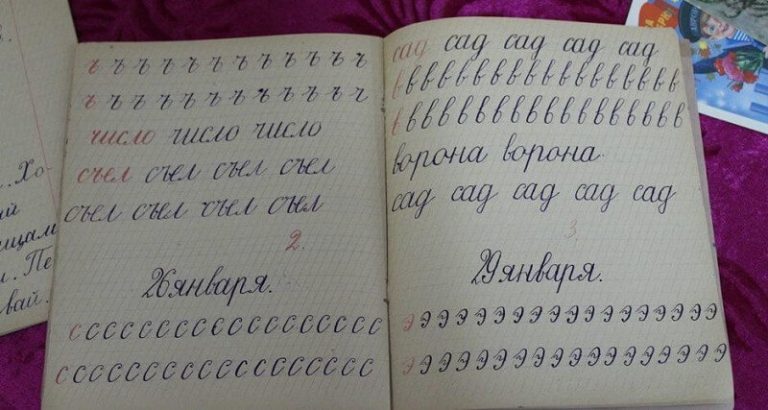 ..Хо-
ай
ищам
л. Пе
вай.
ъ ъ ъ ъ ъ ъ ъ ъ ъ ъ ъ ъ
ъ ъ ъ ъ ъ ъ ъ ъ ъ ъ ъ ъ
число число число
съел съел съел съел
съел съел съел съел
2.
26 января.
с с с с с с с с с с с с с с с с с
с с с с с с с с с с с с с с с с с
сад сад сад сад сад
в в в в в в в в в в в в в в в в в в
в в в в в в в в в в в в в в в в в в
ворона ворона.
сад сад сад сад сад
3.
29 января.
э э э э э э э э э э э э э э э э э э
э э э э э э э э э э э э э э э э э э